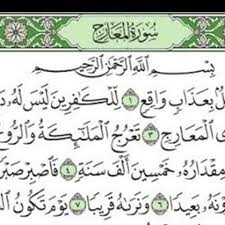 سُورَةُ المَعَارِجِ
بِسْمِ ٱللَّهِ ٱلرَّحْمَٰنِ ٱلرَّحِيمِ
بِعَذَابٍ وَاقِعٍ ١ لِّلْكَٰفِرِينَ لَيْسَ لَهُۥ
ٱلْمَعَارِجِ ٣ تَعْرُجُ ٱلْمَلَٰٓئِكَةُ وَٱلرُّو
مِقْدَارُهُۥ خَمْسِينَ أَلْفَ سَنَةٍ ٤ فَٱصْبِرْ صَبْر
ونَهُۥ بَعِيدًا ٦ وَنَرَىٰهُ قَرِيبًا ٧ يَوْمَ تَكُونُ